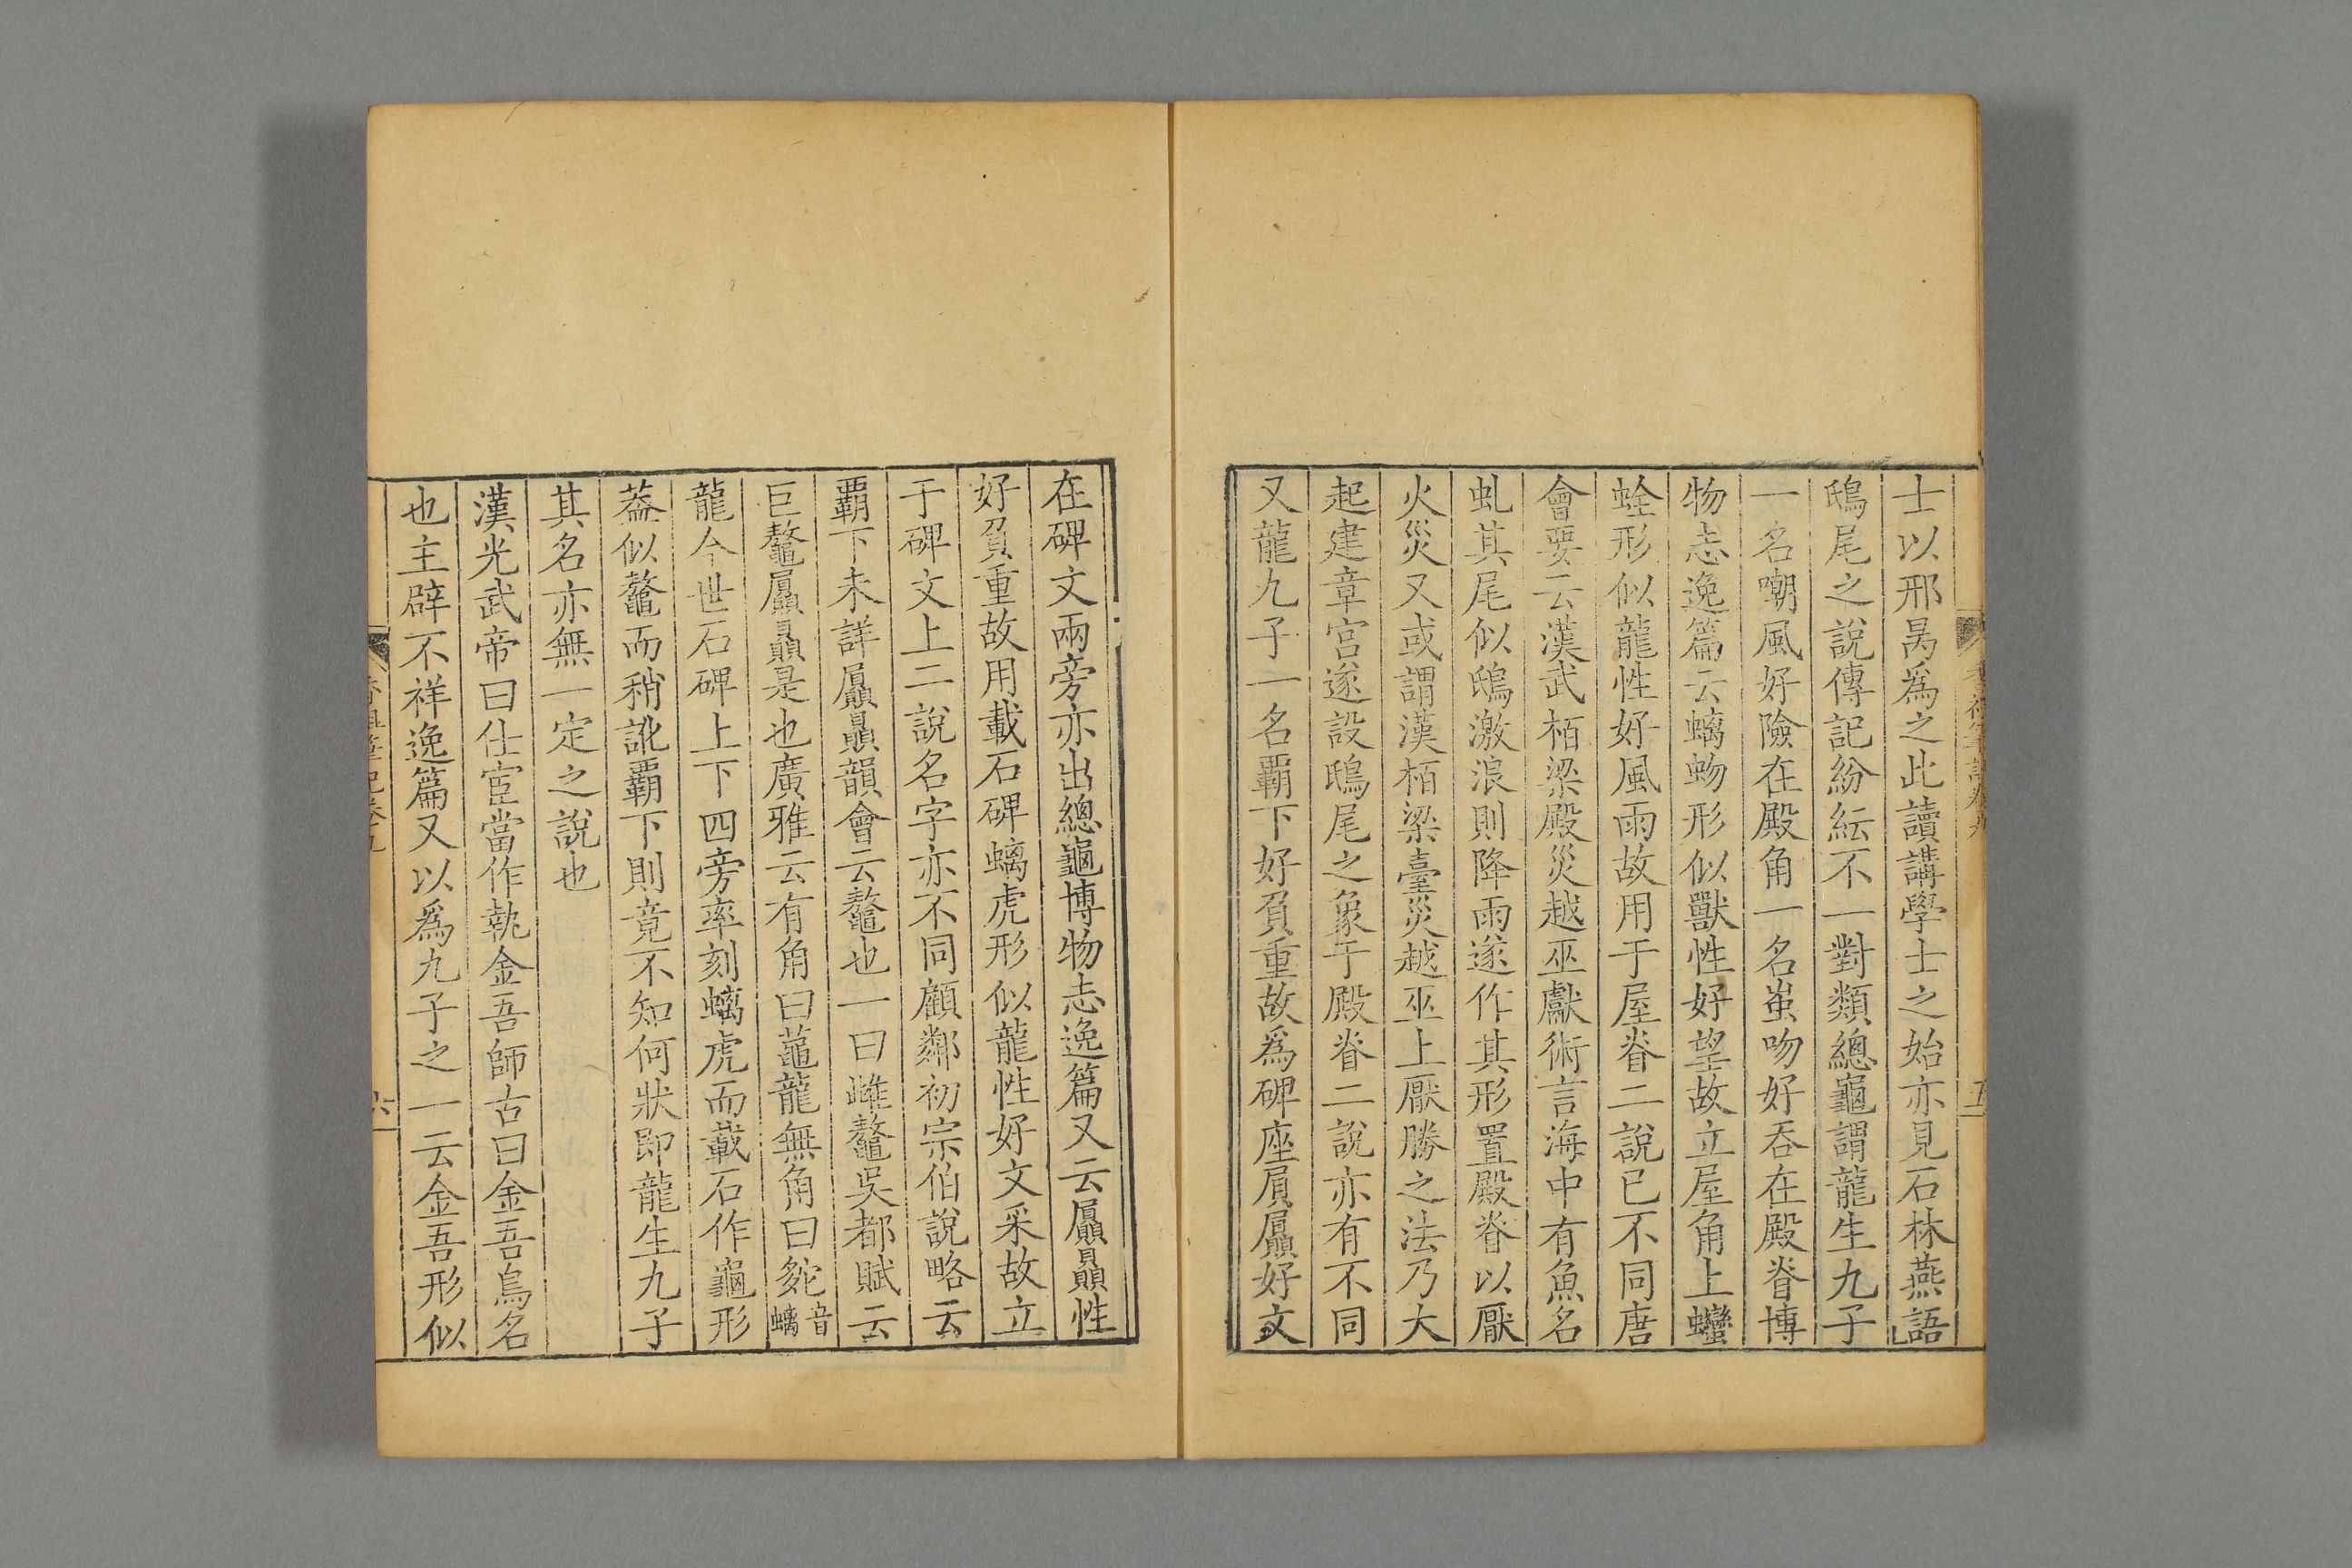 士以邢昺爲之此讀講學士之始亦見石林燕語
鴟尾之說傳記紛紜不一對類總龜謂龍生九子
一名嘲風好險在殿角一名蚩吻好吞在殿脊博
物志逸篇云螭蚴形似獸性好望故立屋角上蠻
蛫形似龍性好風雨故用于屋脊二說已不同唐
會要云漢武栢梁殿災越巫獻術言海中有魚名
虬其尾似鴟激浪則降雨遂作其形置殿脊以厭
火災又或謂漢栢梁臺災越巫上厭勝之法乃大
起建章宮遂設鴟尾之象于殿脊二說亦有不同
又龍九子一名霸下好負重故爲碑座屓屭好文
在碑文兩旁亦出總龜博物志逸篇又云屭贔性
好負重故用載石碑螭虎形似龍性好文采故立
于碑文上二說名字亦不同顧鄰初宗伯說略云
霸下未詳屭贔韻會云鼇也一曰雌鼇吳都賦云
巨鼇屭贔是也廣雅云有角曰𪚰龍無角曰𧉮音螭
龍今世石碑上下四旁率刻螭虎而載石作龜形
葢似鼇而稍訛霸下則竟不知何狀即龍生九子
其名亦無一定之說也
漢光武帝曰仕宦當作執金吾師古曰金吾鳥名
也主辟不祥逸篇又以爲九子之一云金吾形似